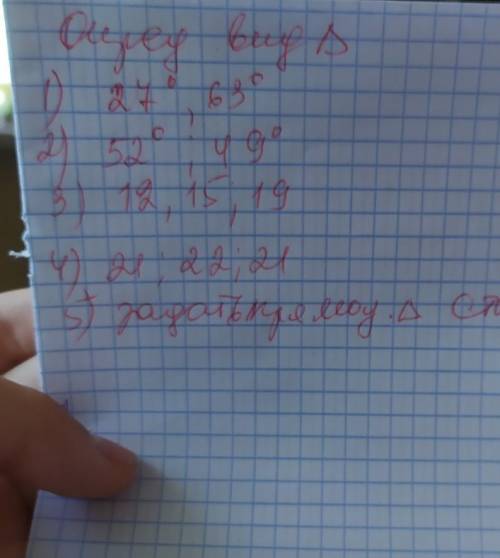 Опред вид Δ
1) 27°, 63°
2) 52°; 49°
3) 12, 15, 19
4) 21; 22; 21
5) задать прямоу. Δ